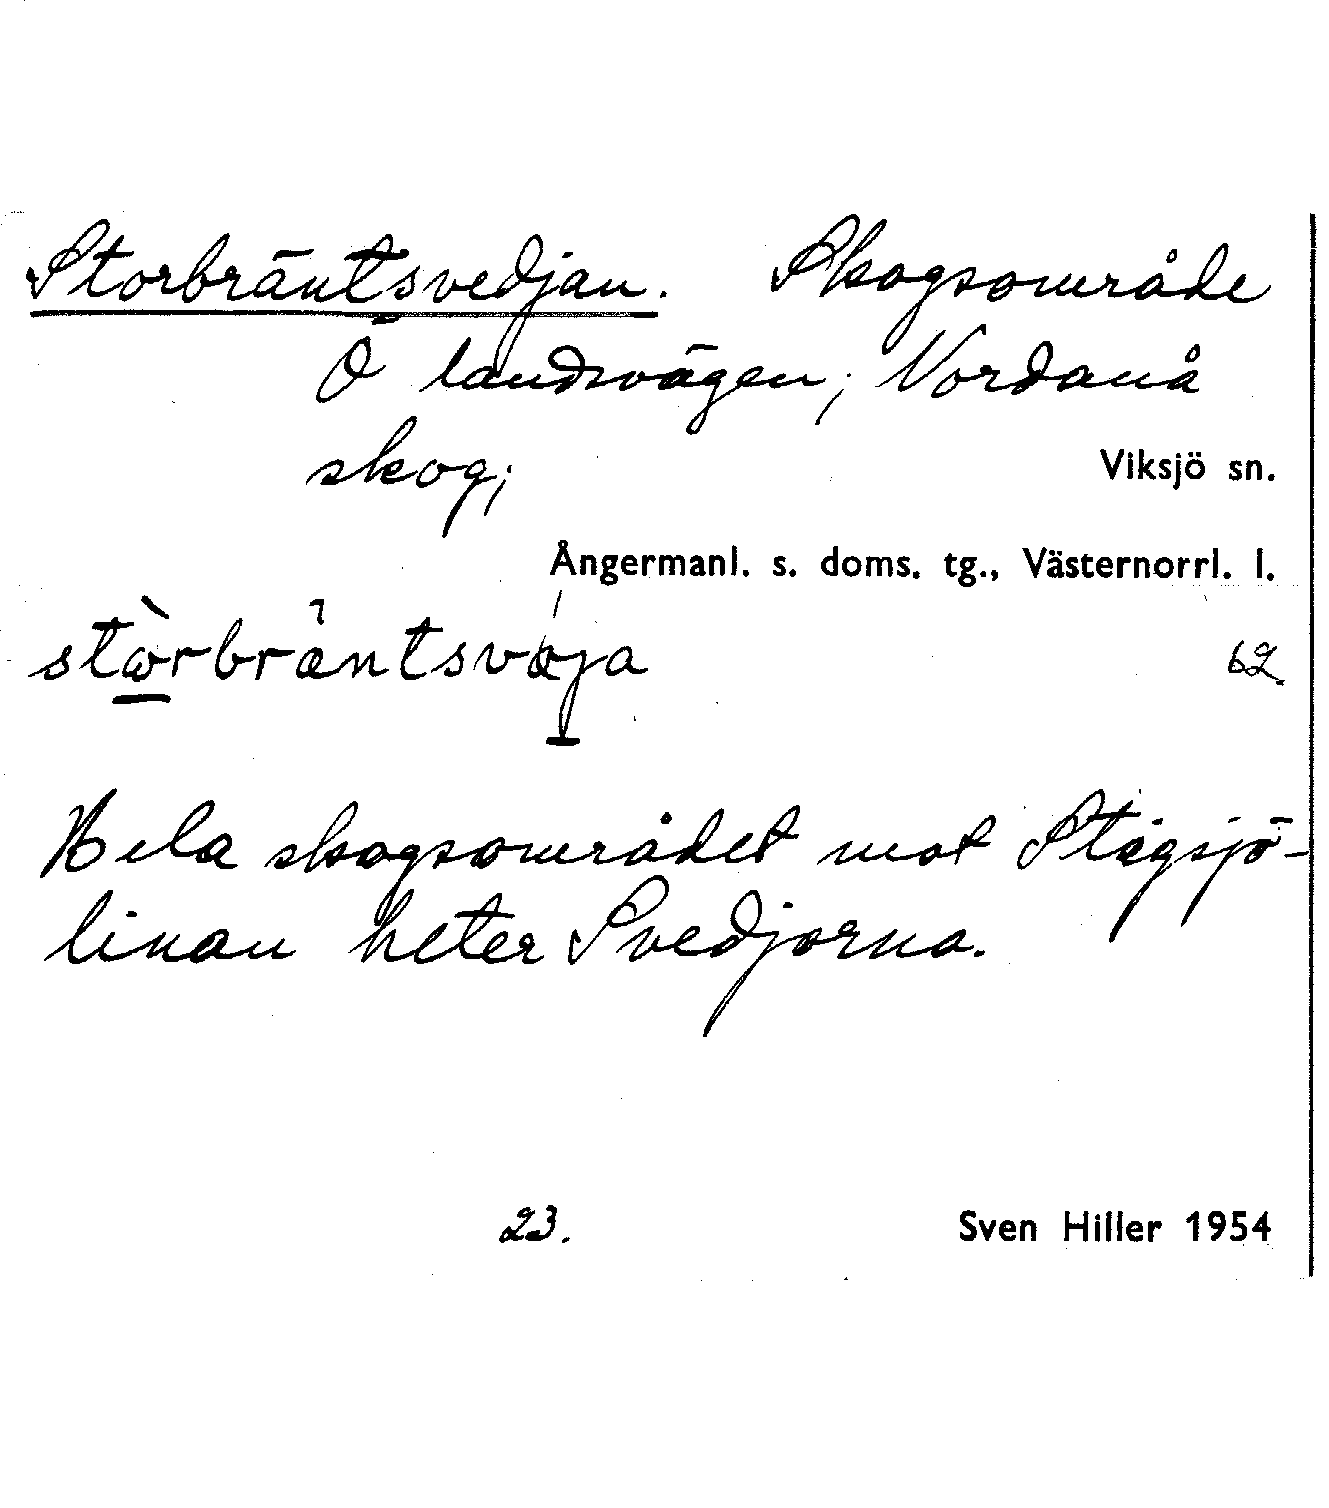 Storbräntsvedjan. Skogsområde
Ö landsvägen; Nordanå
skog;
Viksjö sn.
Ångermanl. s. doms. tg., Västernorrl. l.
62.
Hela skogsområdet mot Stigsjö-
linan heter Svedjorna.
23.
Sven Hiller 1954